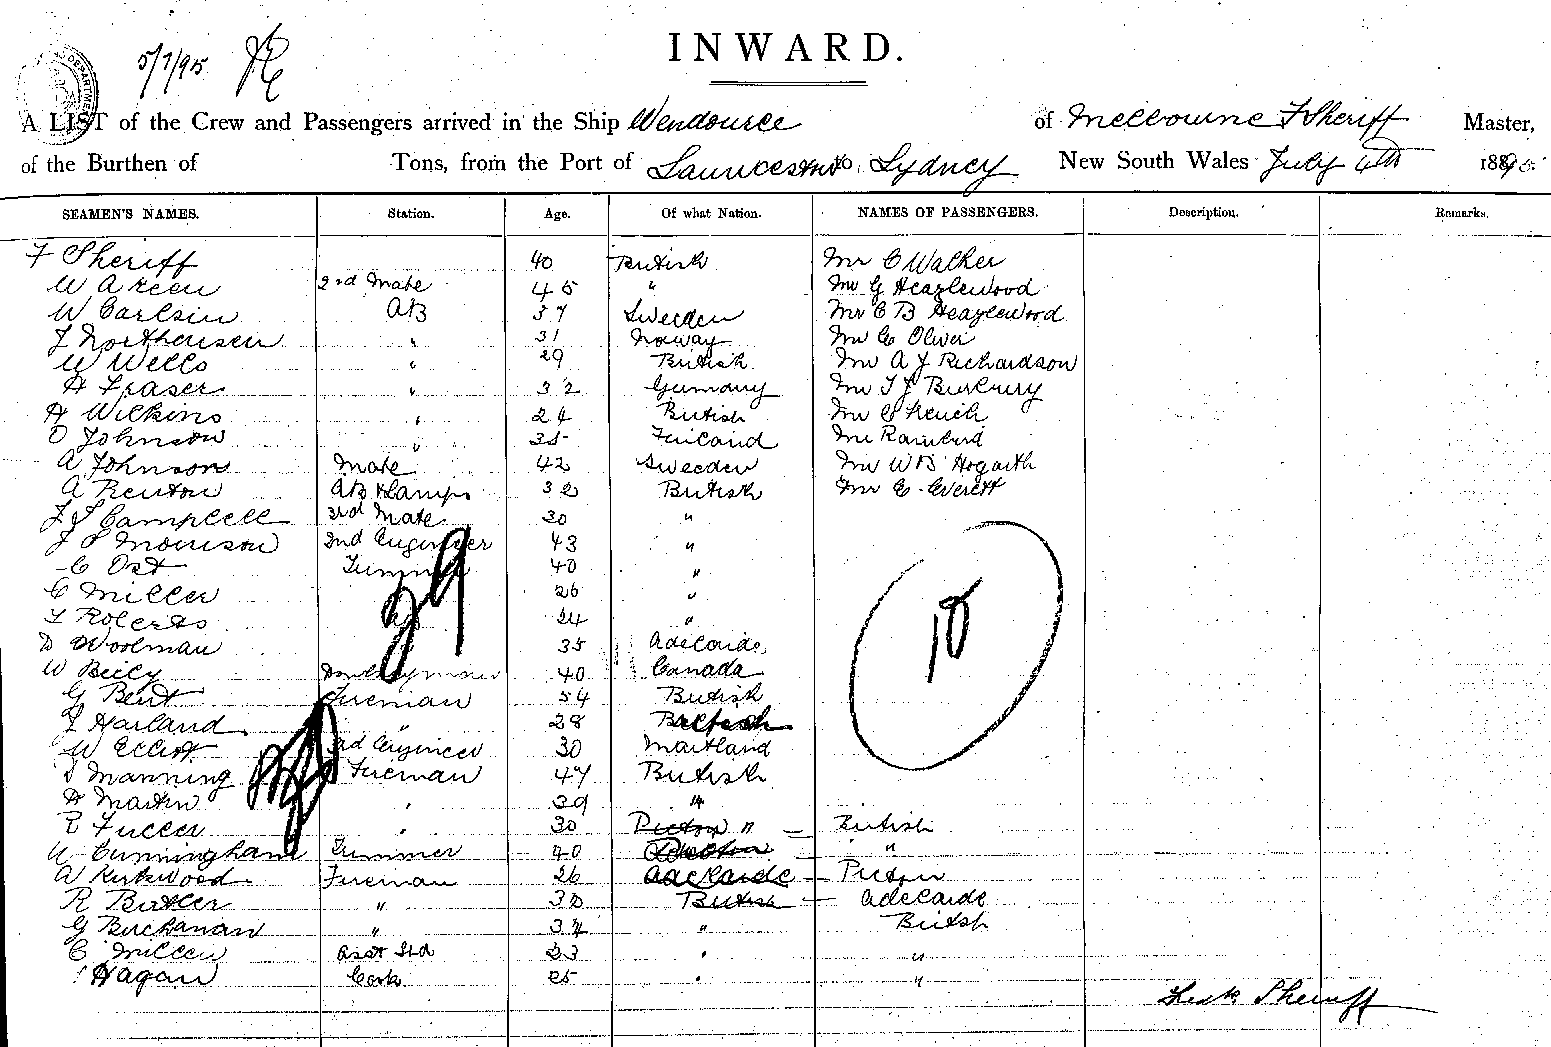 5/7/95
INWARD.
DEPARTMENT
A LIST of the Crew and Passengers arrived in the Ship Wendouree of Melbourne F Sheriff Master,
of the Burthen of Tons, from the Port of Launceston to Sydney New South Wales July 4th 1895
SEAMEN'S NAMES. Station. Age. Of what Nation. NAMES OF PASSENGERS. Description. Remarks.
F Sheriff 40 British Mr C Walker
W Areen 2nd Mate 45 " Mr G Heazlewood
W Carlsin AB 37 Sweeden Mr C B Heazlewood
J Northensen " 31 Norway Mr C Oliver
W Wells " 29 British Mr A J Richardson
H Fraser " 32 Germany Mr T J Burbury
H Wilkins " 24 British Mr C French
O Johnson " 35 Finland Mr Rainbird
A Johnson Mate 42 Sweeden Mr W B Hogarth
A Renton AB & Lamps 32 British Mr C Everett
J J Campbell 3rd Mate 30 "
J S Morrison 2nd Engineer 43 "
C Ost Trimmer 40 "
C Miller 26 "
T Roberts 24 "
D Woolman 35 Adelaide
W Beily Donkeyman 40 Canada
G Bent Fireman 54 British
J Harland " 28 British
W Elliott 3rd Engineer 30 Maitland
T Manning Fireman 47 British
H Martin " 39 "
R Fuller " 30 Picton " — British
W Cunningham Trimmer 40 "
A Kirkwood Fireman 26 Adelaide — Picton
R Butler " 30 British — Adelaide
G Buchanan " 34 " British
C Miller Asst Std 23 " "
Hagan Cook 25 " "
29
10
Fredk Sheriff